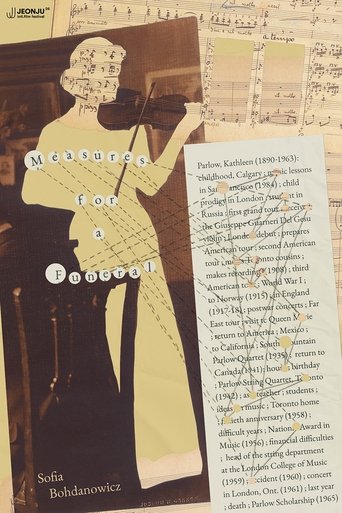 JEONJU
intl. film festival
a tempo
Measures
for
a
Funeral
Parlow, Kathleen (1890-1963):
childhood, Calgary ; lessons
in San Francisco (1984) ; child
prodigy in London ; student in
Russia ; first grand tour ; receives
the Giuseppe Guarneri Del Gesu
violin ; debut ; prepares
American tour ; second American
tour ; Toronto cousins ;
makes recording (1908) ; third
American ; World War I ;
to Norway (1915) in England
(1917-18) ; postwar concerts ; Far
East tour ; visit to Queen
; return to America ; Mexico ;
to California ; South Mountain
Parlow Quartet (1935) return to
Canada (1941) ; birthday
Parlow String Quartet, Toronto
(1942) ; as teacher ; students ;
ideas music ; Toronto home
; anniversary (1958) ;
difficult years ; National Award in
Music (1956) ; financial difficulties
; head of the string department
at the London College of Music
(1959) ; accident (1960) ; concert
in London, Ont. (1961) ; last year
; death ; Parlow Scholarship (1965)
Sofia
Bohdanowicz